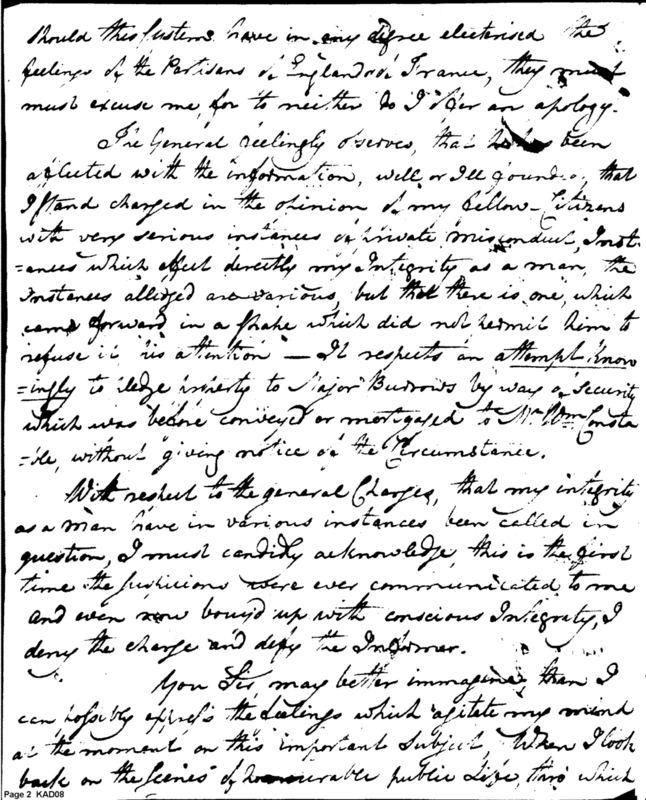 should this system have in any degree electerised the
feelings of the Partisans of England or of France, they must
must excuse me, for to neither do I offer an apology.
The General feelingly observes, that he has been
afflicted with the information, well or Ill founded, that
I stand charged in the opinion of my fellow-Citizens
with very serious instances of private misconduct, Inst-
=ances which affect directly my Integrity as a man, the
instances alledged are various, but that there is one, which
came forward in a shape which did not permit him to
refuse it his attention — It respects an attempt know
=ingly to pledge property to Major Burrows by way of Security
which was before conveyed or mortgaged to Mr. Wm. Consta
=ble, without giving notice of the Circumstance.
With respect to the general Charges, that my integrity
as a man have in various instances been called in
question, I must candidly acknowledge, this is the first
time the suspicions were ever communicated to me
and even now bouy'd up with conscious Integrity, I
deny the charge and defy the Informer.
You Sir, may better immagine, than I
can possibly express the feelings which agitate my mind
at the moment on this important subject, When I look
back on the scenes of honourable public Life, thro which
Page 2 KAD08